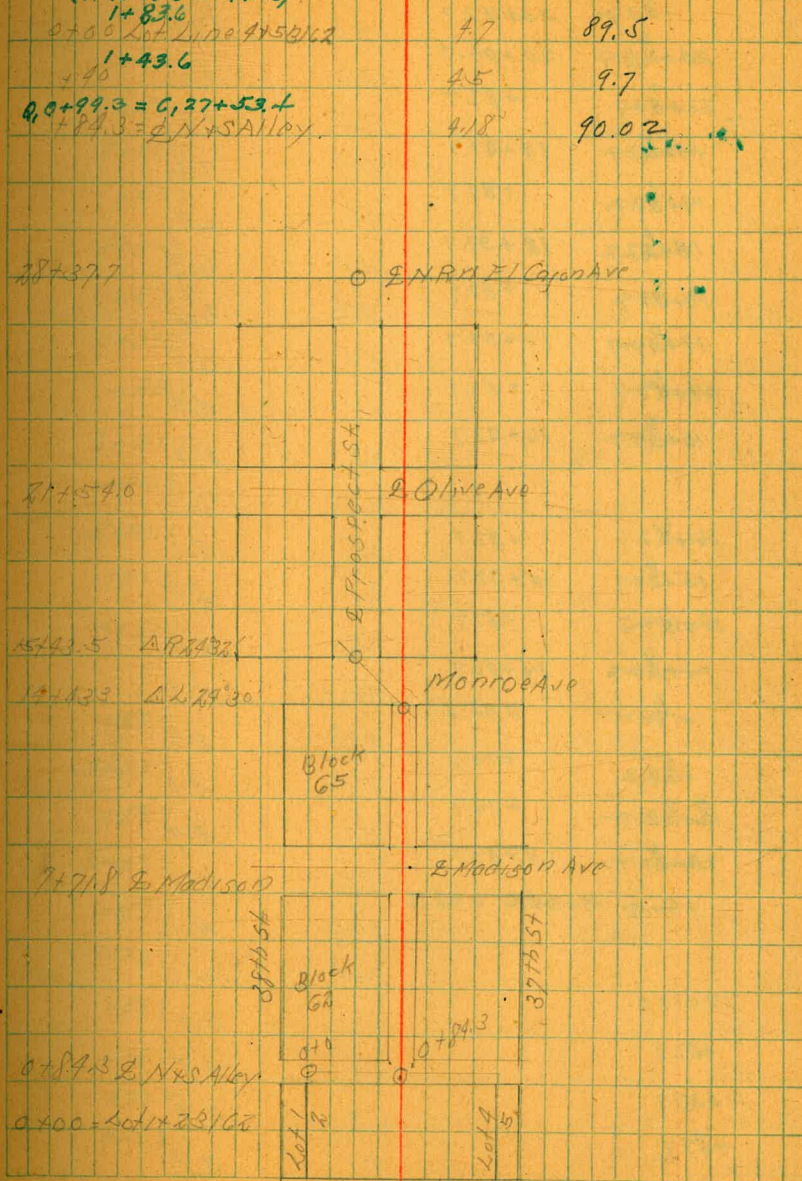 1+83.6
0+00 Lot Line 4x5 B/62 4.7 89.5
1+43.6
+40 4.5 9.7
0+99.3 = C, 27+53.4
+84.3 = ℄ N x S Alley. 4.18 90.02
28+37.7 ℄ N Rn El Cajon Ave
21+54.0 ℄ Olive Ave
℄ Prospect St
15+43.5 Δ R 24°32'
14+43.3 Δ L 24°30'
Monroe Ave
Block
65
7+71.8 ℄ Madison ℄ Madison Ave
38th St
Block
62
37th St
0+0
0+84.3
0+84.3 ℄ N x S Alley.
0+00 = Lot 1 x 2 B/62
Lot 1
2
Lot 4
5